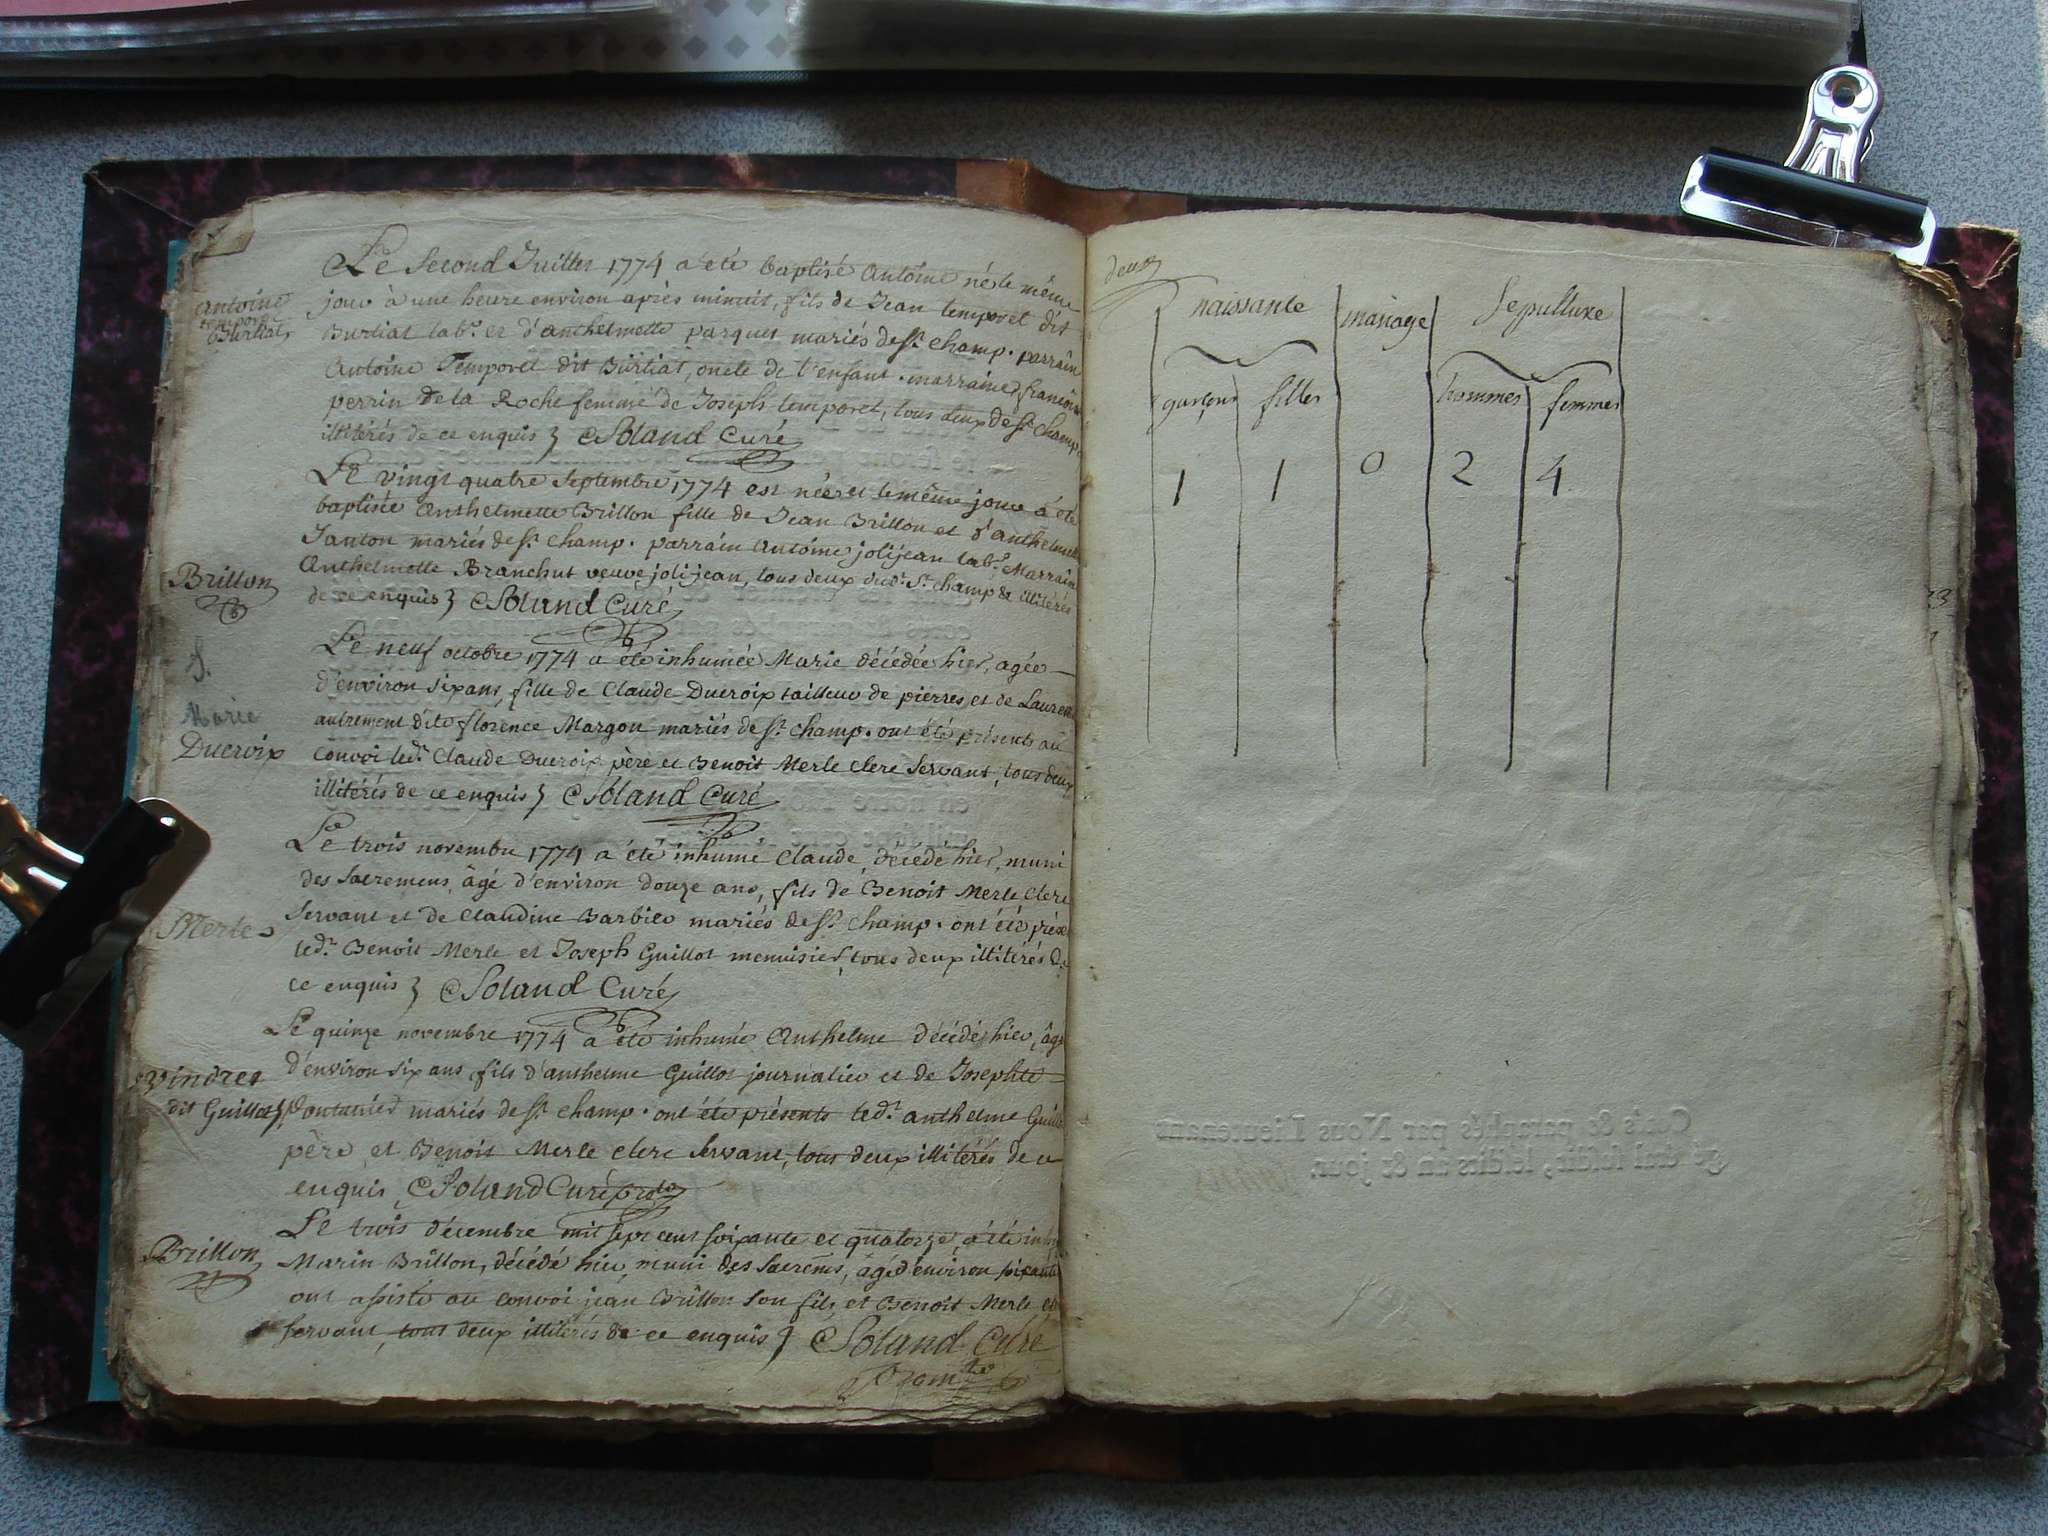 Le second Juillet 1774 a été baptisé Antoine né le même
Antoine
temporel
Burtiat
jour à une heure environ après minuit, fils de Jean temporel dit
Burtiat lab.r et d'anthelmette parques mariés de St. champ. parrain
Antoine Temporel dit Burtiat, oncle de l'enfant. marraine francoise
perrin de la Roche femme de Joseph temporel, tous deux de St. champ
illitérés de ce enquis } Soland Curé
Le vingt quatre septembre 1774 est née et le même jour a été
baptisée Anthelmette Brillon fille de Jean Brillon et d'anthelmette
Janton mariés de St. champ. parrain Antoine jolijean lab.r Marraine
Brillon
Anthelmette Branchut veuve jolijean, tous deux dud.t St. champ & illitérés
de ce enquis } Soland Curé
S.
Marie
Ducroix
Le neuf octobre 1774 a été inhumée Marie décédée hier, agée
d'environ six ans, fille de Claude Ducroix tailleur de pierres et de Laurence
autrement dite florence Margon mariés de St. champ. ont été présents au
convoi led.t Claude Ducroix père et Benoit Merle clerc servant, tous deux
illitérés de ce enquis } Soland Curé
Le trois novembre 1774 a été inhumé Claude, décédé hier, muni
des sacremens, âgé d'environ douze ans, fils de Benoit Merle clerc
Merle
servant et de Claudine Barbier mariés de St. champ. ont été
led.t Benoit Merle et Joseph Guillot menuisier, tous deux illitérés de
ce enquis } Soland Curé
Le quinze novembre 1774 a été inhumé Anthelme décédé hier, âgé
vindres
dit Guillot
d'environ six ans, fils d'anthelme Guillot journalier et de Josephte
mariés de St. champ. ont été présents led.t anthelme
père, et Benoit Merle clerc servant, tous deux illitérés de ce
enquis Soland Curé
Brillon
Le trois décembre mil sept cent soixante et quatorze, a été
Marin Brillon, décédé hier, muni des sacrems, âgé d'environ
ont assisté au convoi jean Brillon son fils, et Benoit Merle
servant, tous deux illitérés de ce enquis } Soland Curé
deux
naissante mariage sepulture
garçons filles hommes femmes
1 1 0 2 4